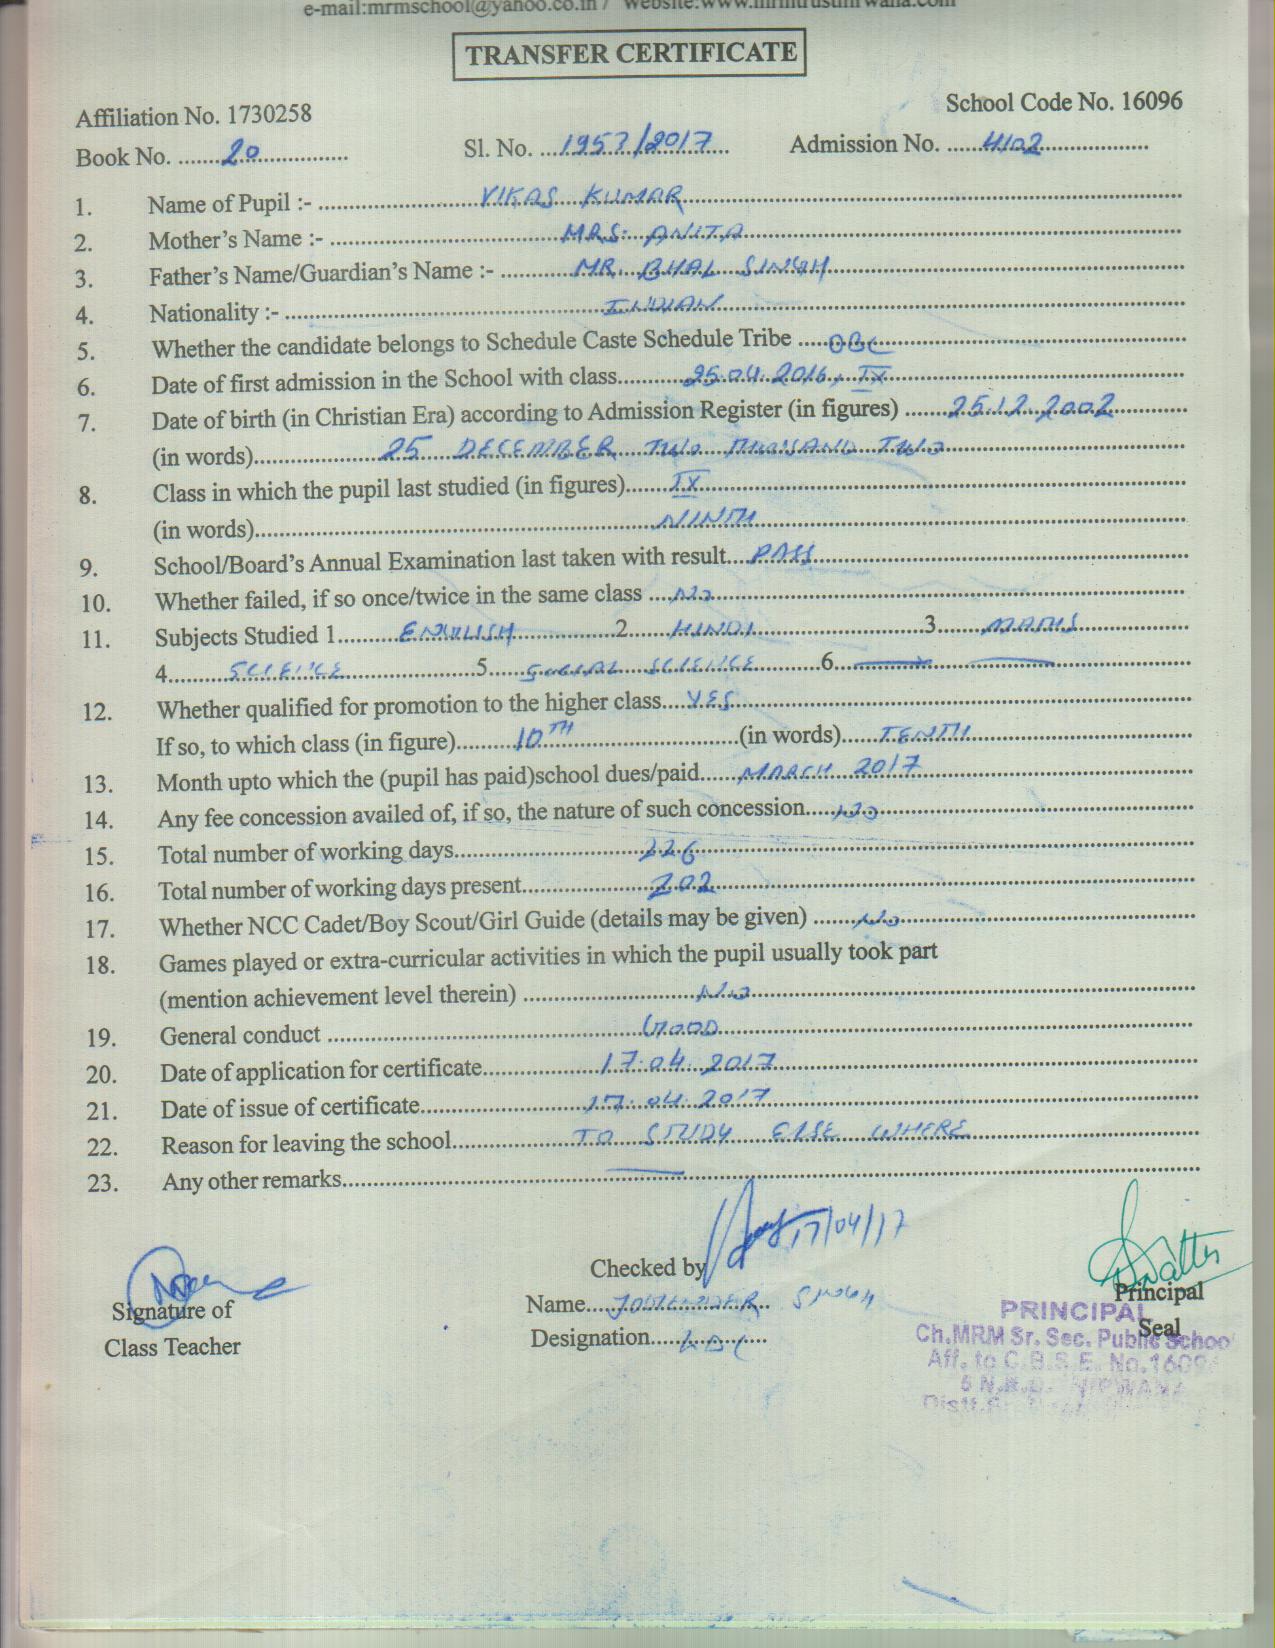 e-mail:mrmschool@yahoo.co.in / Website:www.mrmtrustnrwana.com
TRANSFER CERTIFICATE
Affiliation No. 1730258 School Code No. 16096
Book No. .......20............... Sl. No. ...1953/2017... Admission No. .....4102..................
1. Name of Pupil :- ...........VIKAS KUMAR...........
2. Mother's Name :- ...........MRS. ANITA...........
3. Father's Name/Guardian's Name :- ...........MR. BHAL SINGH...........
4. Nationality :- ...........INDIAN...........
5. Whether the candidate belongs to Schedule Caste Schedule Tribe .....OBC...........
6. Date of first admission in the School with class...........25.04.2016, IX...........
7. Date of birth (in Christian Era) according to Admission Register (in figures) .......25.12.2002...........
(in words)...........25 DECEMBER TWO THOUSAND TWO...........
8. Class in which the pupil last studied (in figures).......IX...........
(in words)...........NINTH...........
9. School/Board's Annual Examination last taken with result....PASS...........
10. Whether failed, if so once/twice in the same class ....No...........
11. Subjects Studied 1..........ENGLISH..........2.......HINDI..........3.......MATHS...........
4..........SCIENCE..........5.......SOCIAL SCIENCE..........6...........
12. Whether qualified for promotion to the higher class....YES...........
If so, to which class (in figure)..........10TH..........(in words)......TENTH...........
13. Month upto which the (pupil has paid)school dues/paid......MARCH 2017...........
14. Any fee concession availed of, if so, the nature of such concession.....No...........
15. Total number of working days...........226...........
16. Total number of working days present...........202...........
17. Whether NCC Cadet/Boy Scout/Girl Guide (details may be given) .......No...........
18. Games played or extra-curricular activities in which the pupil usually took part
(mention achievement level therein) ...........No...........
19. General conduct ...........GOOD...........
20. Date of application for certificate...........17.04.2017...........
21. Date of issue of certificate...........17.04.2017...........
22. Reason for leaving the school...........TO STUDY ELSE WHERE...........
23. Any other remarks...........
17/04/17
Checked by
Signature of
Class Teacher
Name.... SINGH
Designation......LDC......
Principal
Seal
PRINCIPAL
Ch.MRM Sr. Sec. Public School
Aff. to C.B.S.E. No.1609